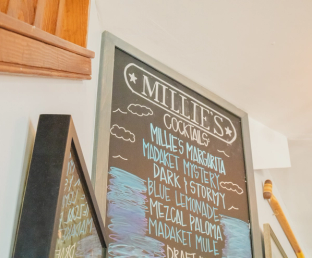 MILLIE'S
COCKTAILS
MILLIE'S MARGARITA
MADAKET MYSTERY
DARK & STORMY
BLUE LEMONADE
MEZCAL PALOMA
MADAKET MULE
DRAFT